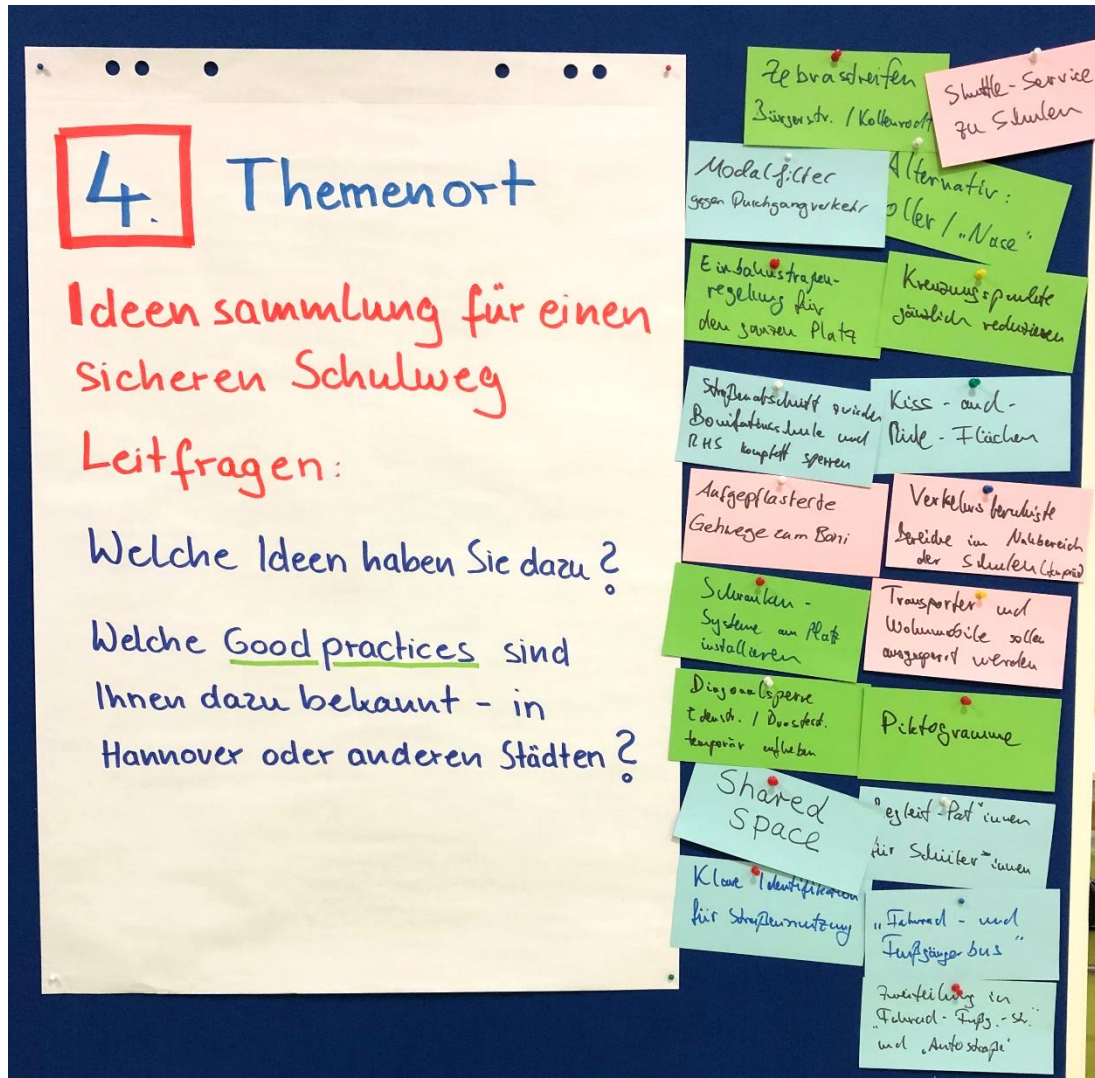 4. Themenort
Ideensammlung für einen
sicheren Schulweg
Leitfragen:
Welche Ideen haben Sie dazu?
Welche Good practices sind
Ihnen dazu bekannt - in
Hannover oder anderen Städten?
Zebrastreifen
Bürgerstr. /
Shuttle-Service
zu Schulen
Modalfilter
gegen Durchgangverkehr
Alternativ:
"Nase"
Einbahnstraßen-
regelung für
den ganzen Platz
Kreuzungspunkte
gänzlich reduzieren
Straßenabschnitt zwischen
Bonifatiusschule und
RHS komplett sperren
Kiss-and-
Ride-Flächen
Aufgepflasterde
Gehwege zum Boni
Verkehrsberuhigte
Bereiche im Nahbereich
der Schulen
Schranken-
Systeme am Platz
installieren
Transporter und
Wohnmobile sollen
ausgesperrt werden
Diagonalsperre
Edenstr. /
temporär aufheben
Piktogramme
Shared
Space
für Schüler*innen
Klare Identifikation
für Straßennutzung
"Fahrrad- und
Fußgängerbus"
Zweiteilung in
"Fahrrad-Fußg.-str."
und "Autostraße"